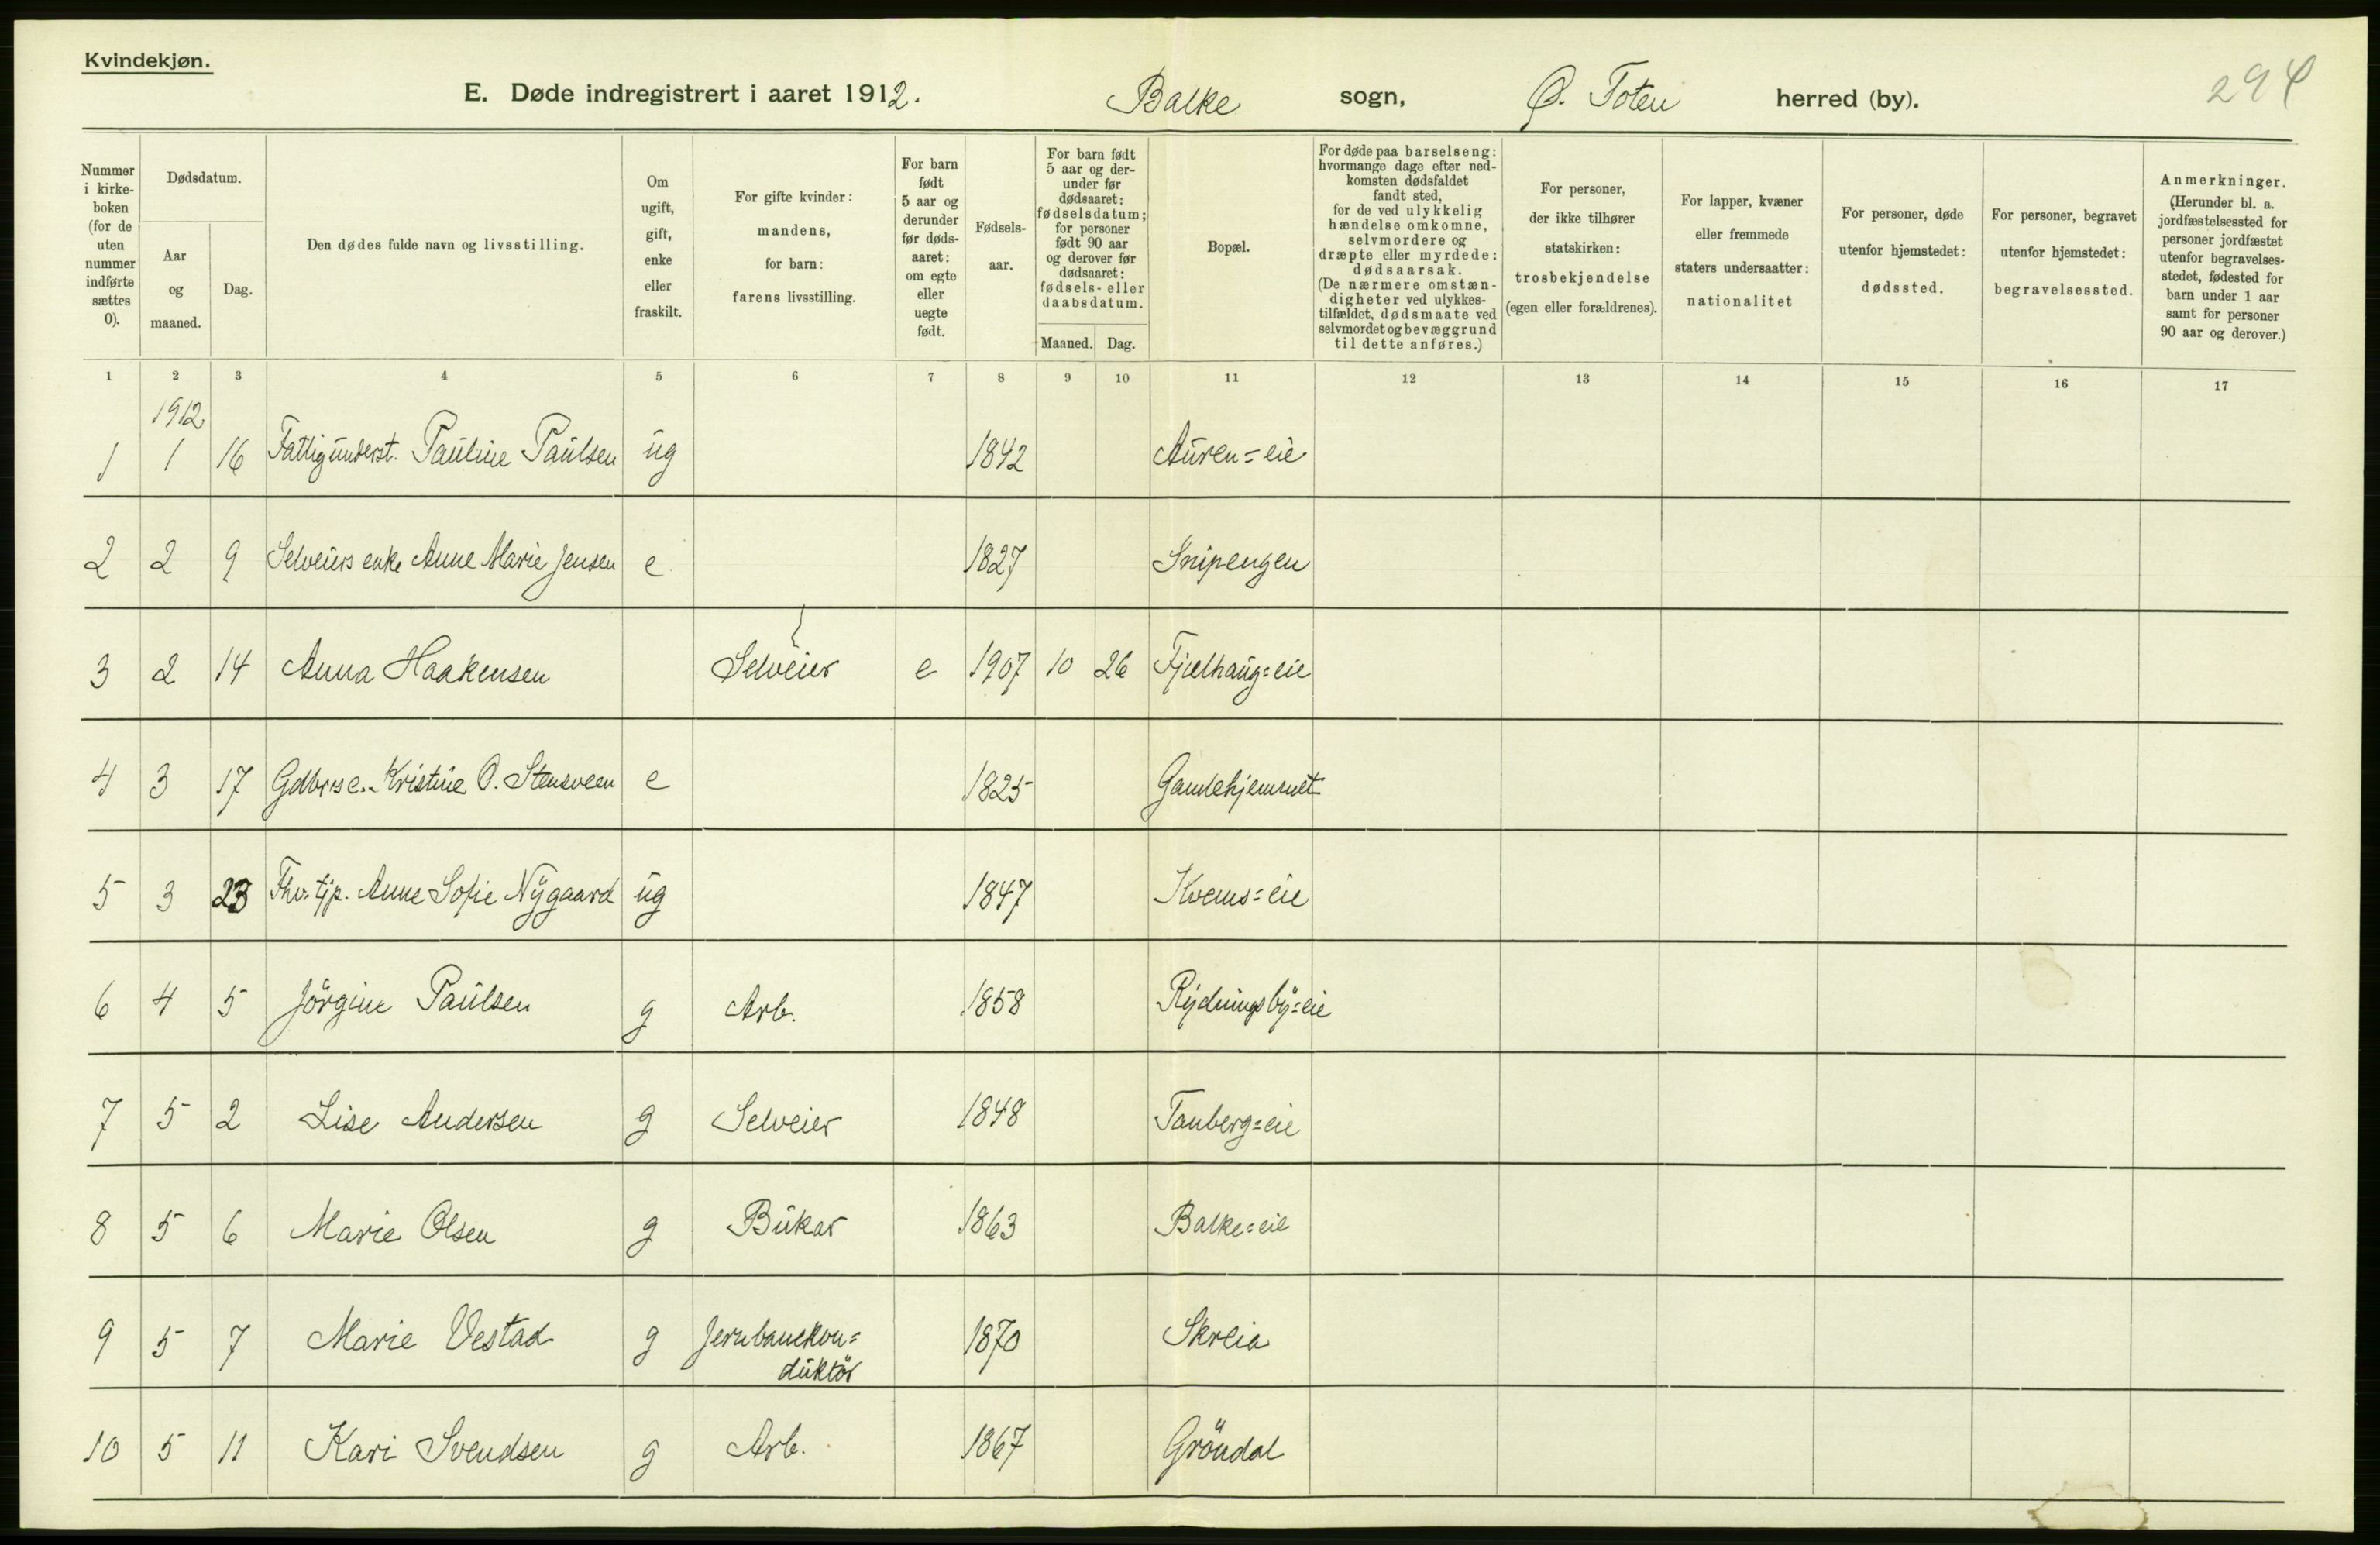 Kvindekjøn.
E. Døde indregistrert i aaret 1912. Balke sogn, Ø. Toten herred (by). 294
Nummer i kirke-boken (for de uten nummer indførte sættes 0).
Dødsdatum.
Aar og maaned.
Dag.
Den dødes fulde navn og livsstilling.
Om ugift, gift, enke eller fraskilt.
For gifte kvinder: mandens, for barn: farens livsstilling.
For barn født 5 aar og derunder før døds-aaret: om egte eller uegte født.
Fødsels-aar.
For barn født 5 aar og der-under før dødsaaret: fødselsdatum; for personer født 90 aar og derover før dødsaaret: fødsels- eller daabsdatum.
Maaned. Dag.
Bopæl.
For døde paa barselseng: hvormange dage efter ned-komsten dødsfaldet fandt sted, for de ved ulykkelig hændelse omkomne, selvmordere og dræpte eller myrdede: dødsaarsak. (De nærmere omstæn-digheter ved ulykkes-tilfældet, dødsmaate ved selvmordet og bevæggrund til dette anføres.)
For personer, der ikke tilhører statskirken: trosbekjendelse (egen eller forældrenes).
For lapper, kvæner eller fremmede staters undersaatter: nationalitet
For personer, døde utenfor hjemstedet: dødssted.
For personer, begravet utenfor hjemstedet: begravelsessted.
Anmerkninger. (Herunder bl. a. jordfæstelsessted for personer jordfæstet utenfor begravelses-stedet, fødested for barn under 1 aar samt for personer 90 aar og derover.)
1 2 3 4 5 6 7 8 9 10 11 12 13 14 15 16 17
1912
1 1 16 Fattigunderst. Pauline Paulsen ug 1842 Auren=eie
2 2 9 Selveiers enke Anne Marie Jensen e 1827 Snipengen
3 2 14 Anna Haakensen Selveier e 1907 10 26 Fjelhaug=eie
4 3 17 Gdbrs e. Kristine O. Stensveen e 1825 Gamlehjemmet
5 3 23 Fhv. tjp. Anne Sofie Nygaard ug 1847 Kvems=eie
6 4 5 Jörgine Paulsen g Arb. 1858 Rydningsby=eie
7 5 2 Lise Andersen g Selveier 1848 Tanberg=eie
8 5 6 Marie Olsen g Bukar 1863 Balke=eie
9 5 7 Marie Vestad g Jernbanekon= 1870 Skreia
duktör
10 5 11 Kari Svendsen g Arb. 1867 Gröndal